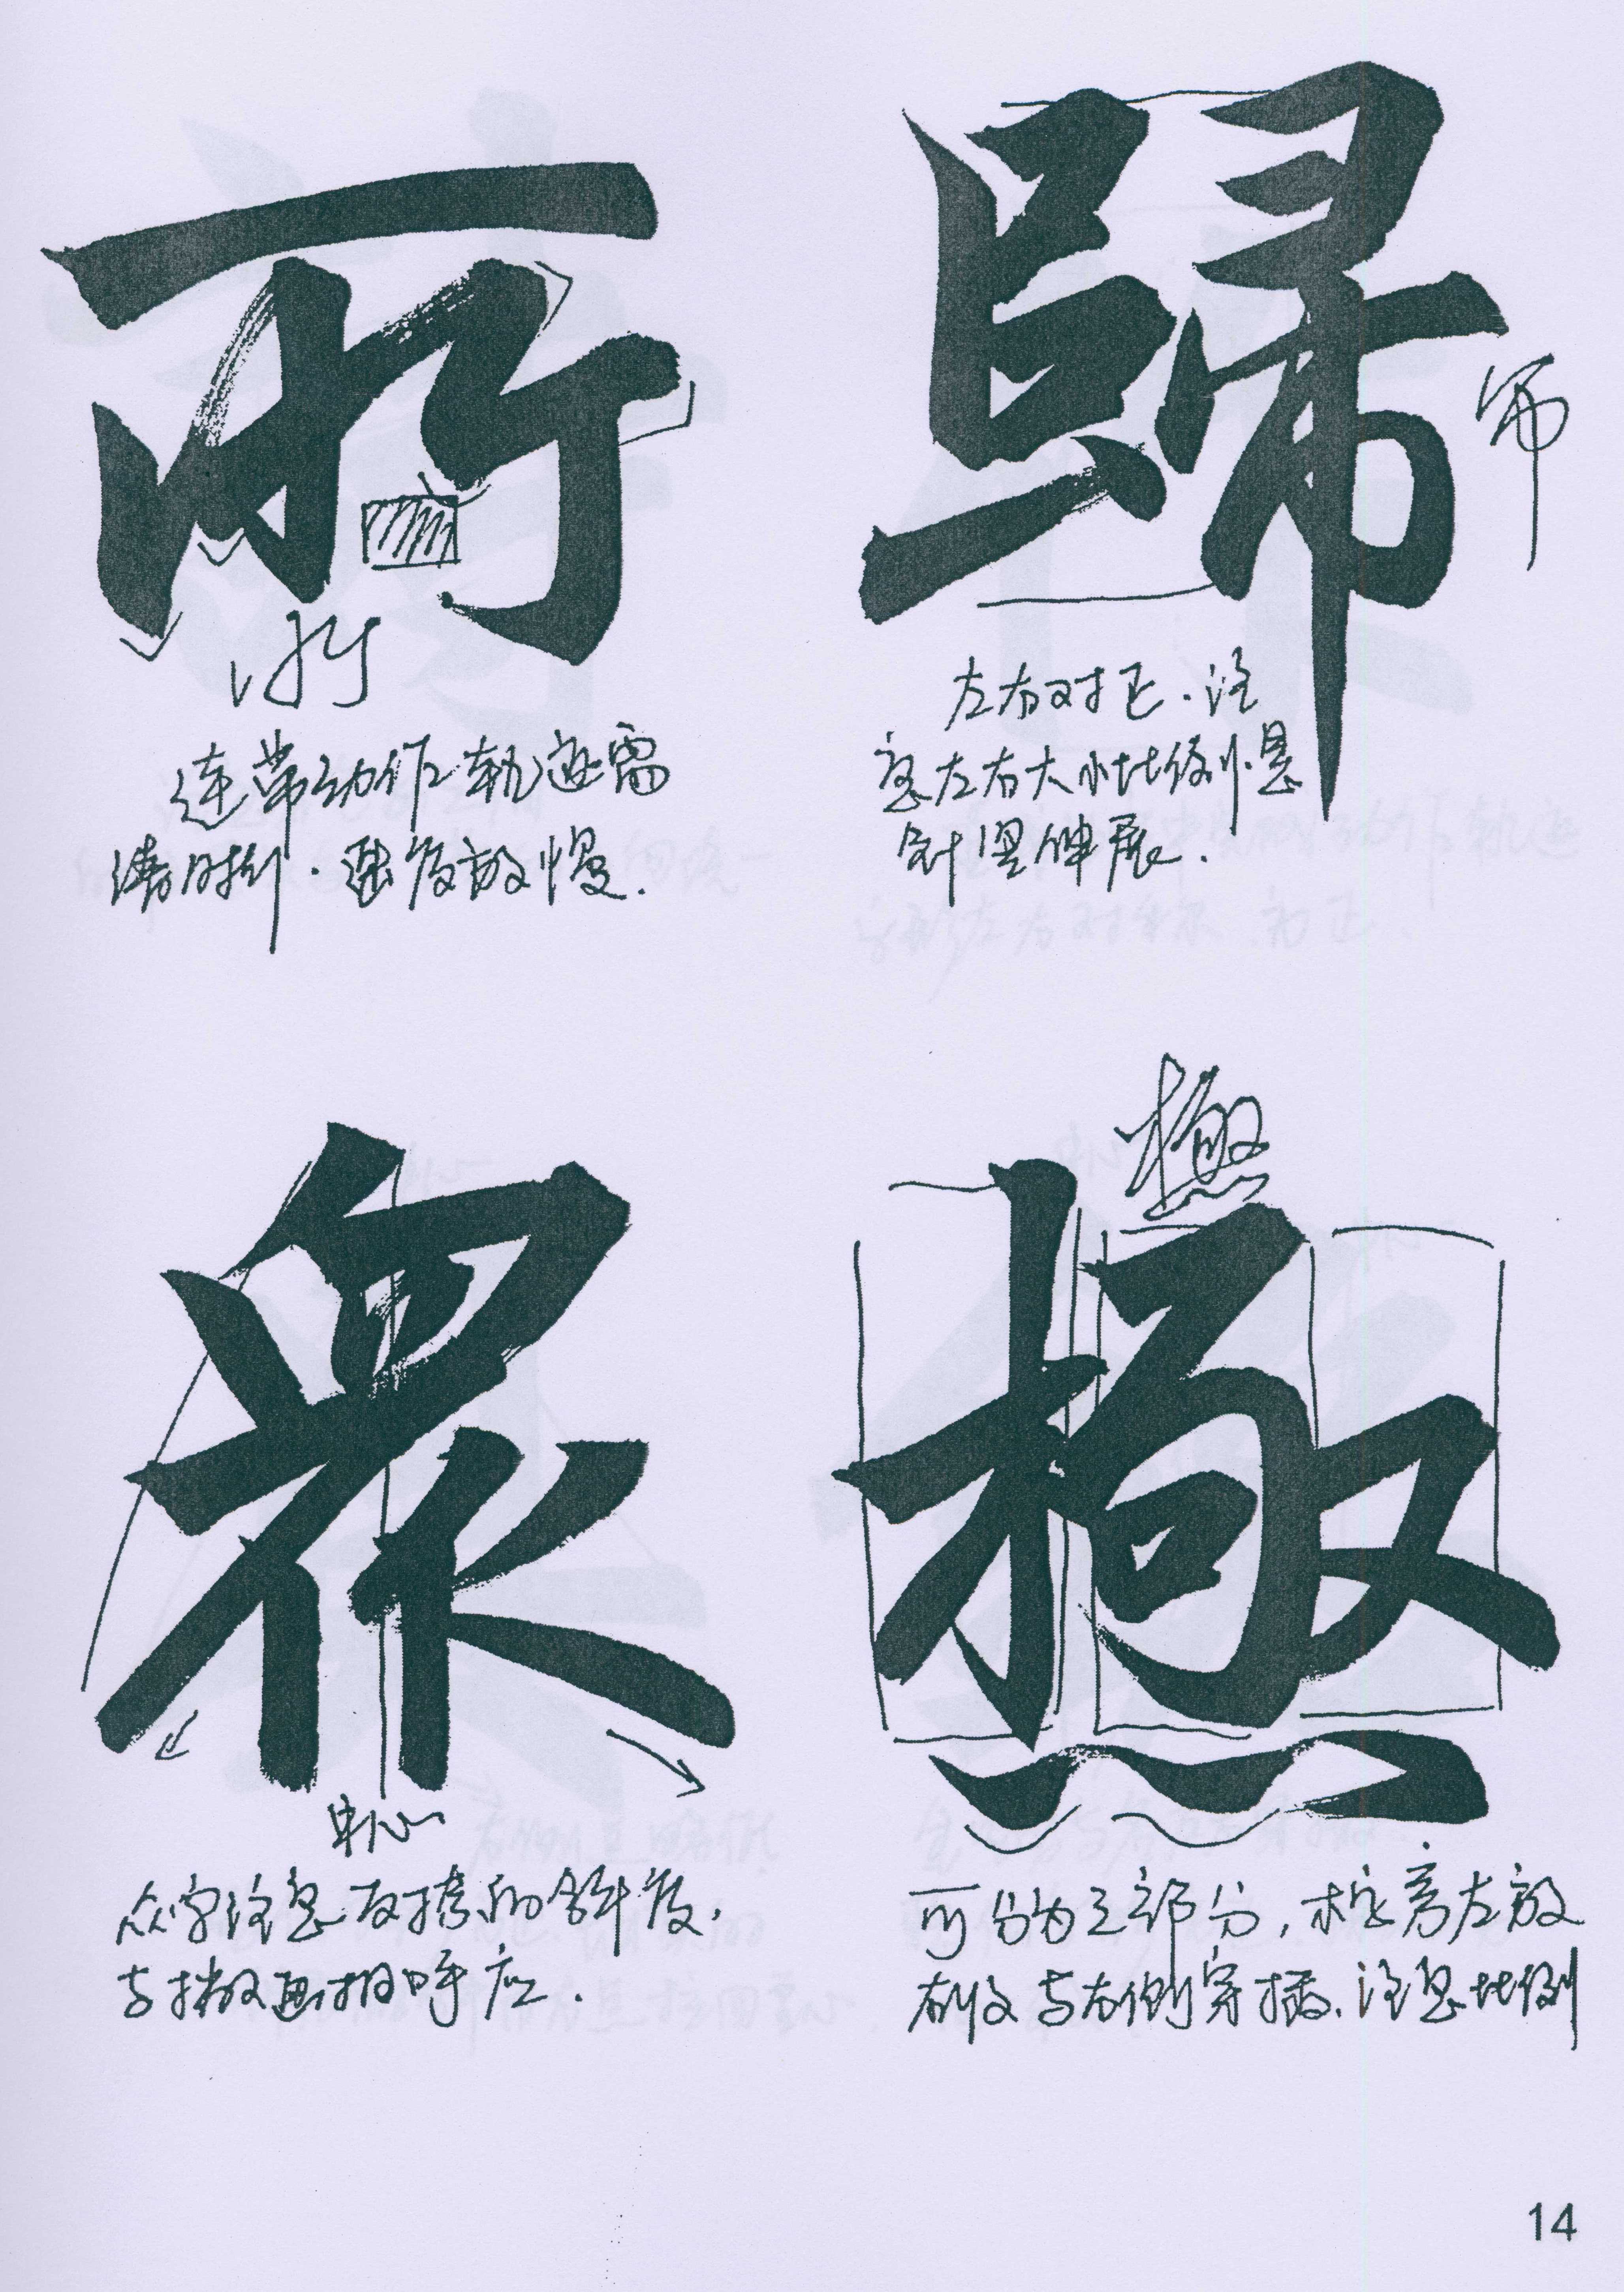 所
連带动作轨迹需
清晰．速度放慢．
歸
左右对正．注
意左右大小比例．悬
针竖伸展．
眾
中心
众字注意反撑的斜度，
与撇画相呼应．
極
可分为三部分，木字旁左放
右收与右侧穿插．注意比例
14